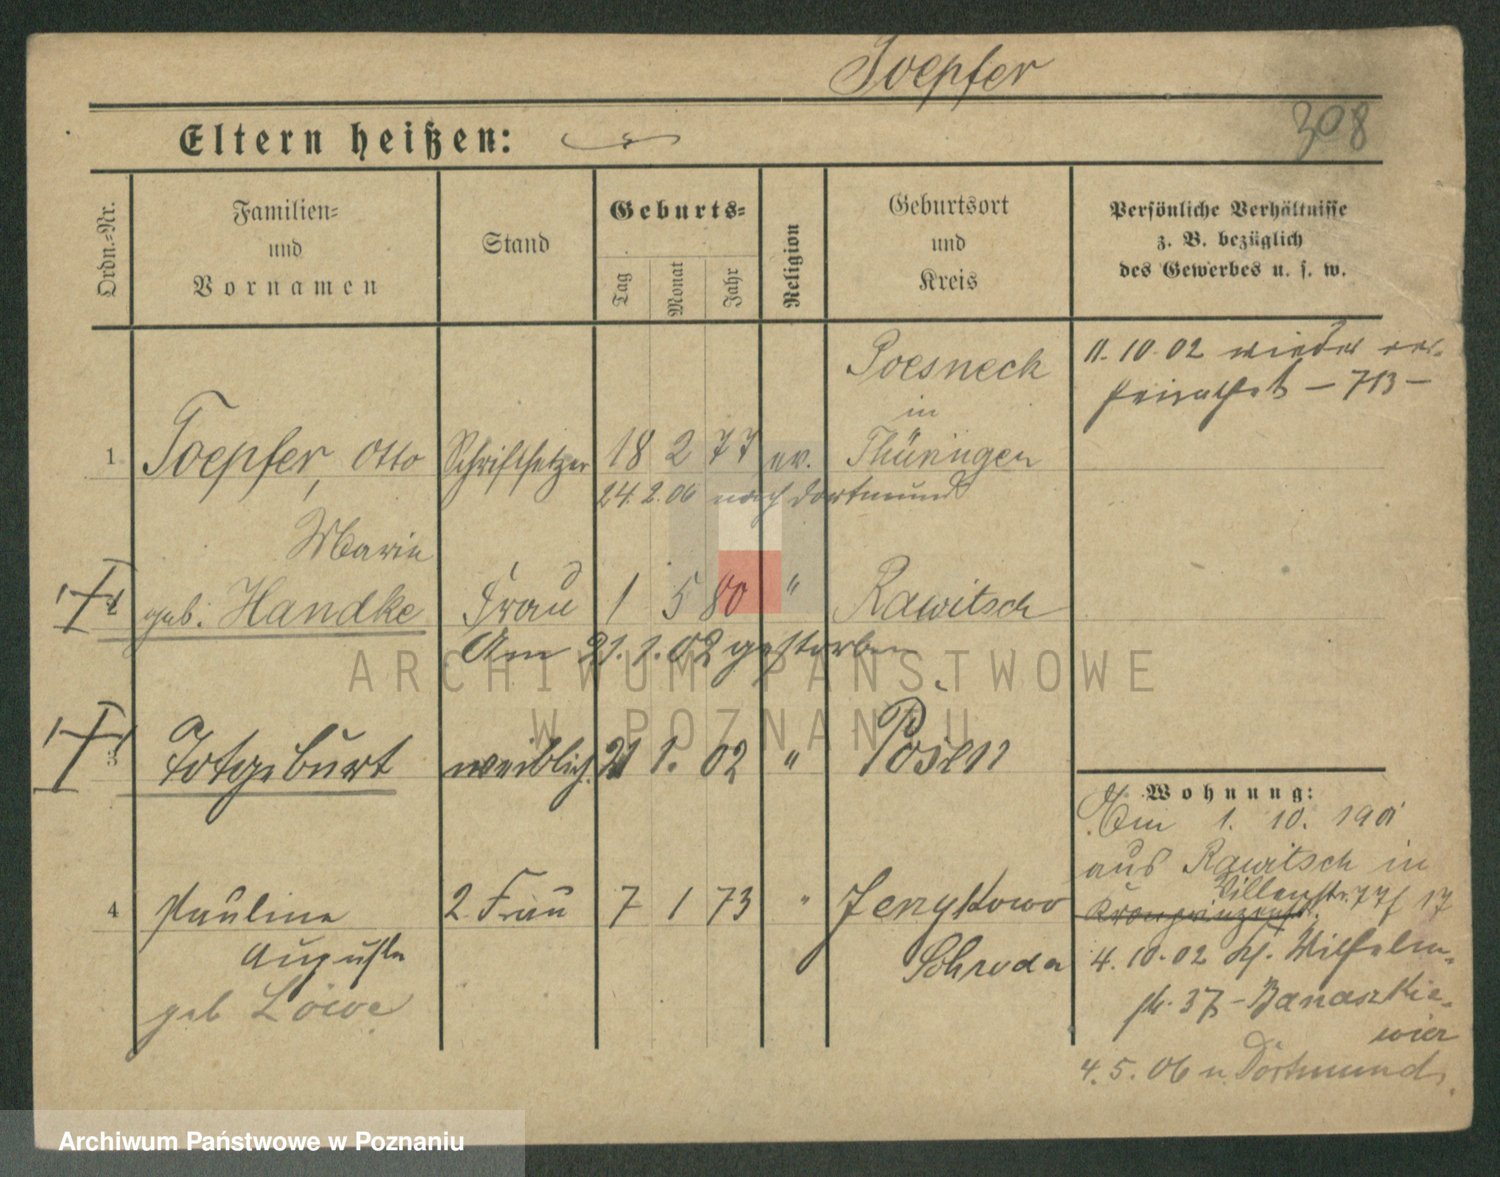 Toepfer
308
Eltern heißen:
Ordn.-Nr.
Familien-
und
Vornamen
Stand
Geburts-
Tag
Monat
Jahr
Religion
Geburtsort
und
Kreis
Persönliche Verhältnisse
z. B. bezüglich
des Gewerbes u. s. w.
11. 10. 02 wieder ver-
heirathet – 713 –
Poesneck
in
1 Toepfer, Otto Schriftsetzer 18 2 77 ev. Thüringen
24. 2. 06 nach Dortmund
Marie
2 geb. Handke Frau 1 5 80 " Rawitsch
Am 21. 1. 02 gestorben
3 Totgeburt weiblich. 21 1. 02 " Posen
4 Pauline 2. Frau 7 1 73 " Jerzykowo
Auguste Schroda
geb Löwe
Wohnung:
Am 1. 10. 1901
aus Rawitsch in
Kronprinzenstr.
4. 10. 02 Wilhelm-
str. 37 – Banaszkie-
wicz
4. 5. 06 n. Dortmund.
ARCHIWUM PAŃSTWOWE
W POZNANIU
Archiwum Państwowe w Poznaniu